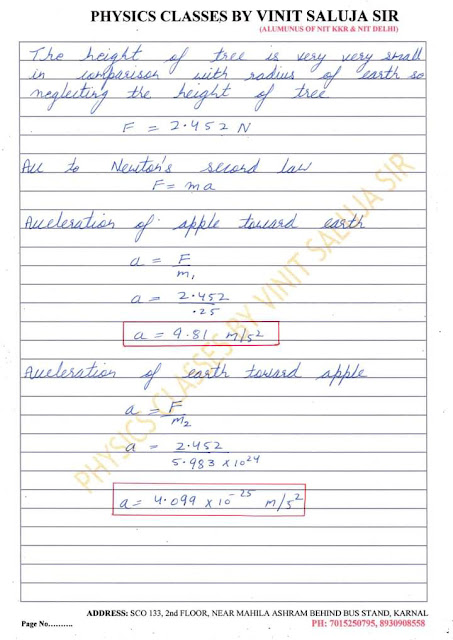 PHYSICS CLASSES BY VINIT SALUJA SIR
(ALUMUNUS OF NIT KKR & NIT DELHI)
The height of tree is very very small
in comparison with radius of earth so
neglecting the height of tree
F = 2.452 N
Acc to Newton's second law
F = ma
Acceleration of apple toward earth
a = F/m₁
a = 2.452/.25
a = 9.81 m/s²
Acceleration of earth toward apple
a = F/m₂
a = 2.452/5.983 × 10²⁴
a = 4.099 × 10⁻²⁵ m/s²
PHYSICS CLASSES BY VINIT SALUJA SIR
ADDRESS: SCO 133, 2nd FLOOR, NEAR MAHILA ASHRAM BEHIND BUS STAND, KARNAL
Page No.......... PH: 7015250795, 8930908558